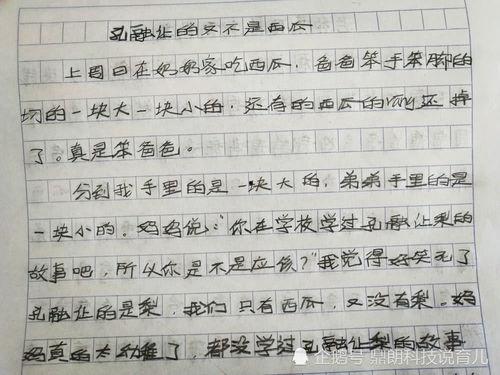 孔融让的又不是西瓜
上周日在奶奶家吃西瓜，爸爸笨手笨脚的
切的一块大一块小的，还有的西瓜的还掉
了。真是笨爸爸。
分到我手里的是一块大的，弟弟手里的是
一块小的。妈妈说："你在学校学过孔融让梨的
故事吧，所以你是不是应该？"我觉得好笑死了
孔融让的是梨，我们只有西瓜，又没有梨。妈
妈真的太幼稚了，都没学过孔融让梨的故事
企鹅号 鼎朗科技说育儿